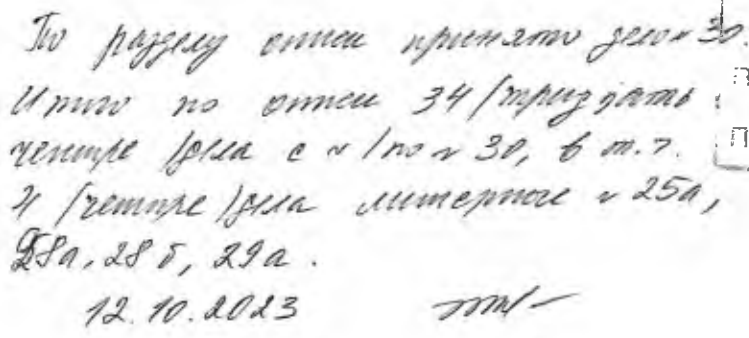 По разделу описи принято дело № 30.
Итого по описи 34 /тридцать
четыре/ дела с № 1 по № 30, в т.ч.
4 /четыре/ дела литерное № 25а,
28а, 28б, 29а.
12.10.2023